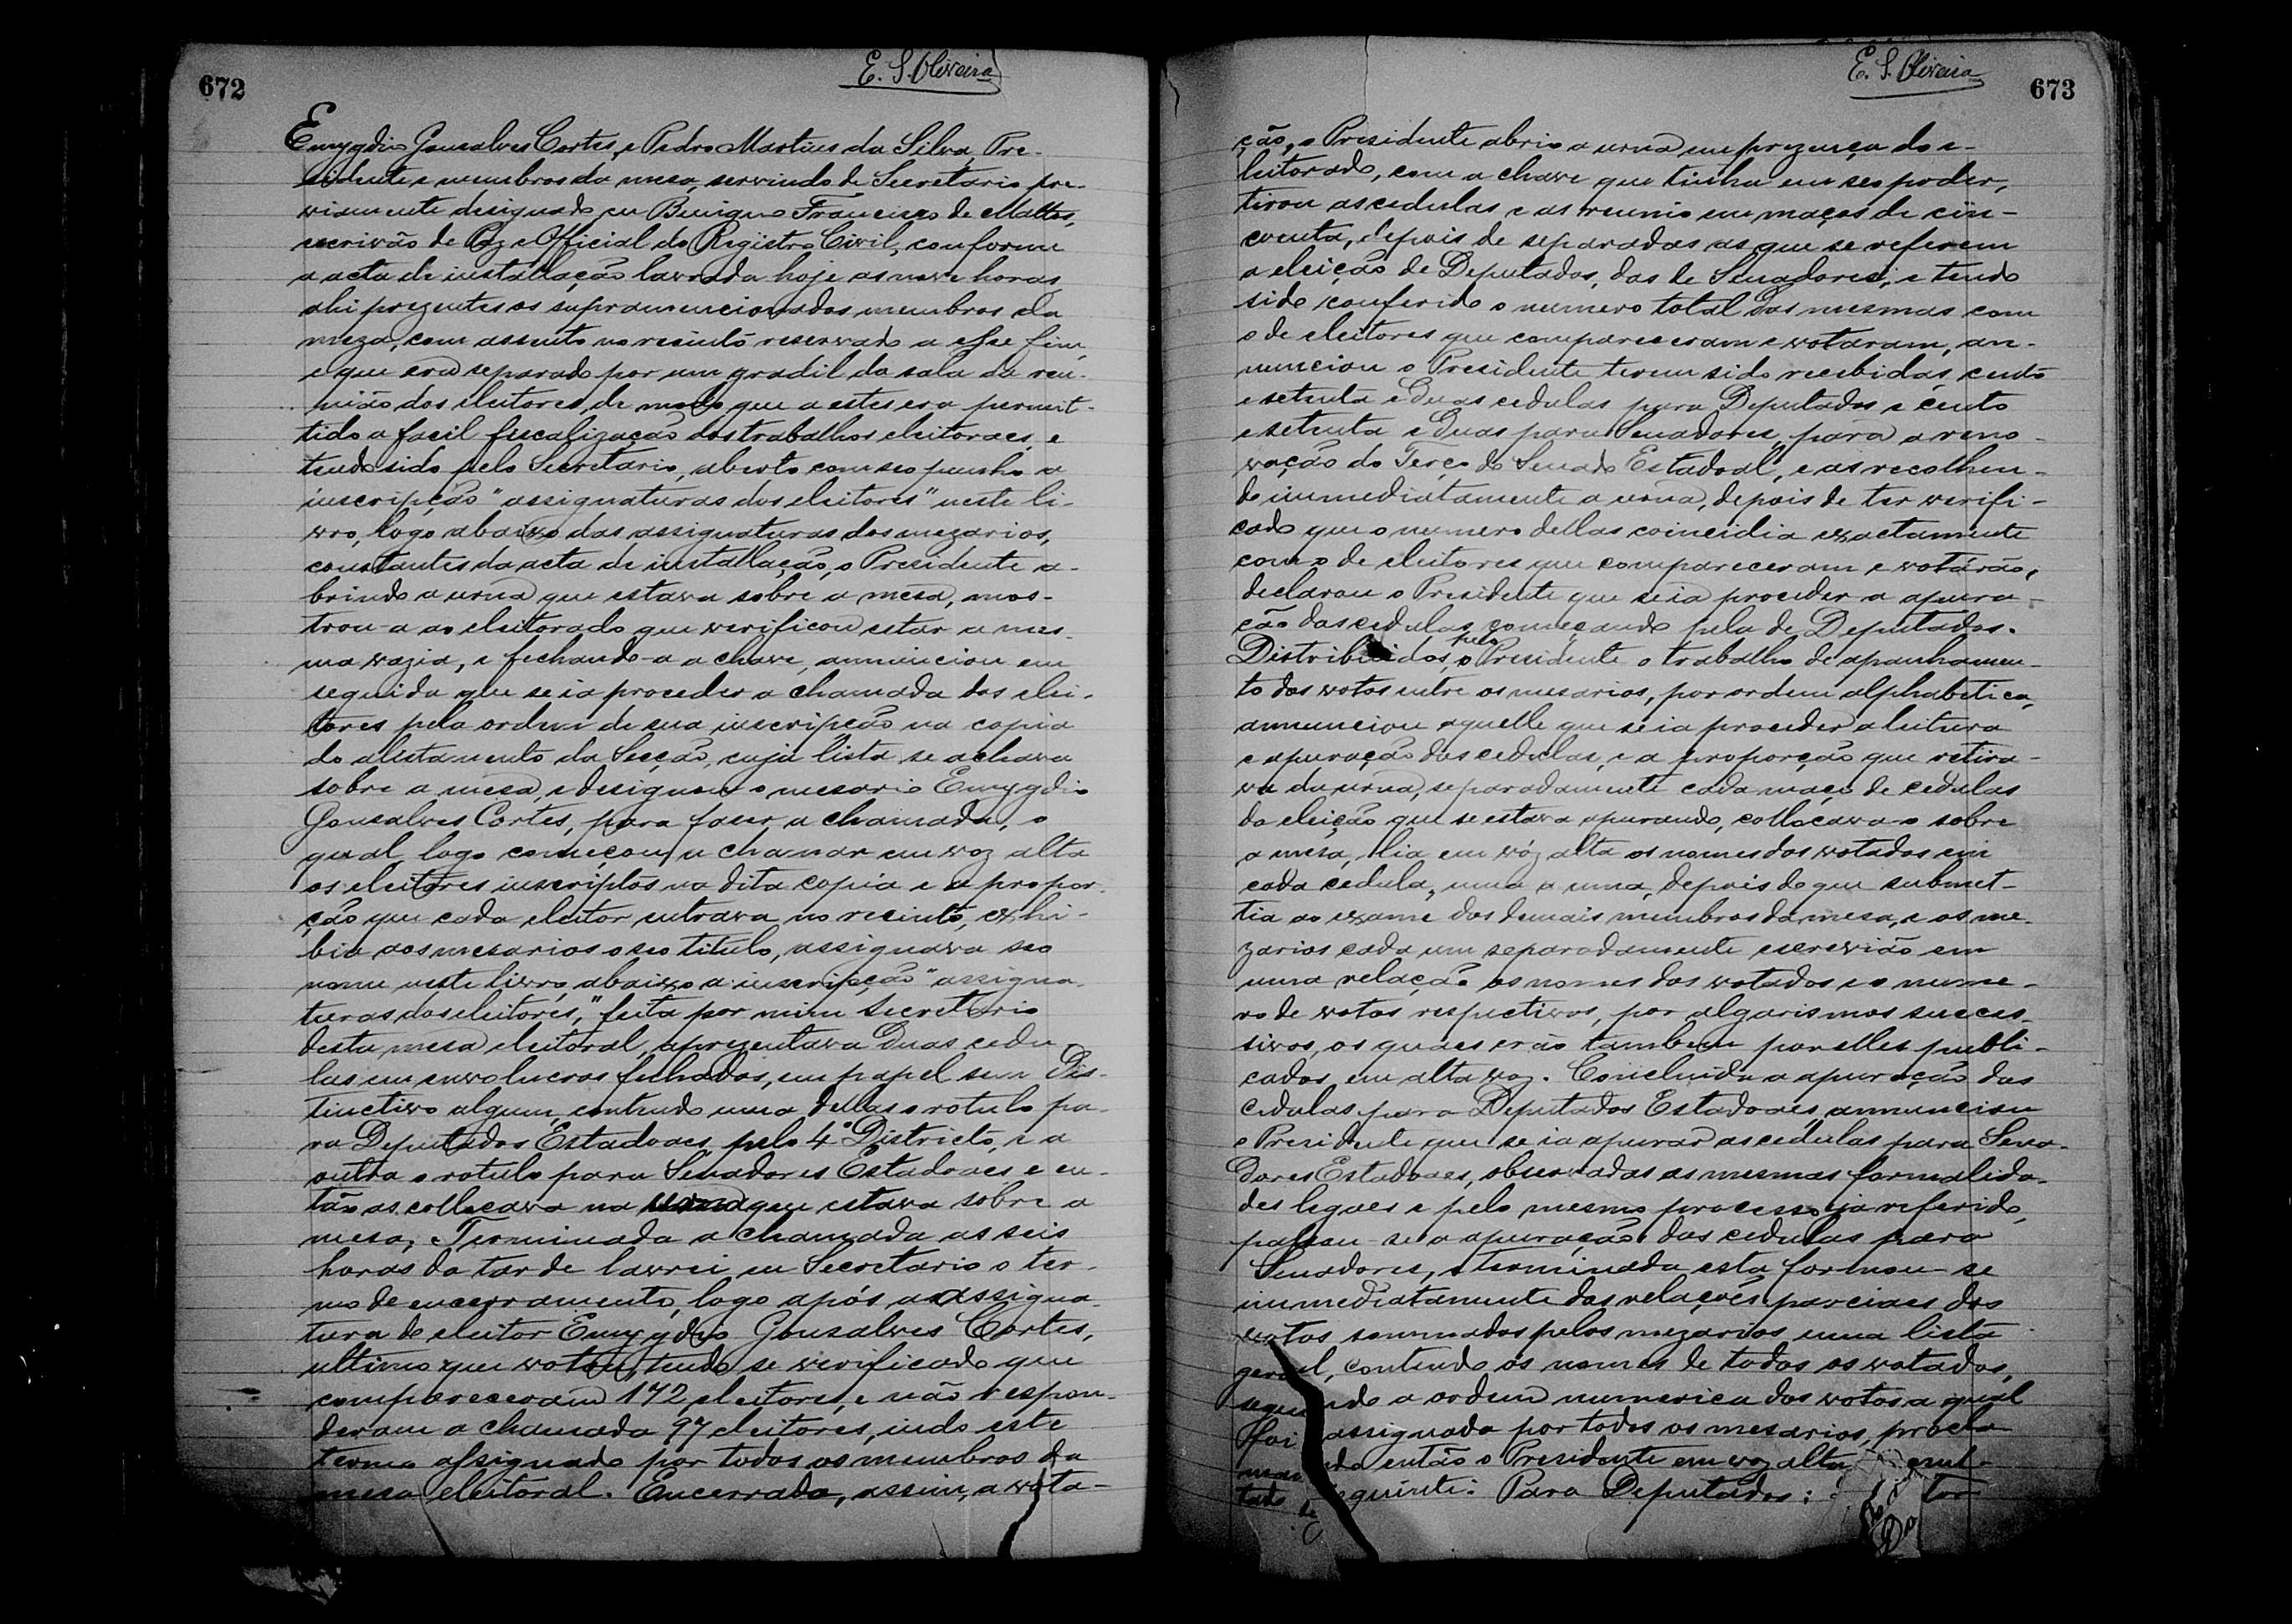 672
E. S. Oliveira
Emygdio Gonsalves Cortes, e Pedro Martins da Silva, Pre-
sidente e membros da mesa, servindo de Secretario pre-
viamente designado eu Benigno Francisco de Mattos,
escrivão de Paz e Official do Registro Civil, conforme
a acta de installação lavrada hoje as nove horas,
ahi prezentes os supramencionados membros da
meza, com assento no recinto reservado a esse fim,
e que era separado por um gradil da sala da reu-
nião dos eleitores, de modo que a estes era permit-
tido a facil fiscalização dos trabalhos eleitoraes, e
tendo sido pelo Secretario, aberto com seo punho a
inscripção "assignaturas dos eleitores" neste li-
vro, logo abaixo das assignaturas dos mezarios,
constantes da acta de installação, o Presidente a-
brindo a urna que estava sobre a mesa, mos-
trou-a ao eleitorado que verificou estar a mes-
ma vazia, e fechando-a a chave, annunciou em
seguida que se ia proceder a chamada dos elei-
tores pela ordem de sua inscripção na copia
do alistamento da Secção, cuja lista se achava
sobre a mesa, e designou o mesario Emygdio
Gonsalves Cortes, para faser a chamada, o
qual logo começou a chamar em voz alta
os eleitores inscriptos na dita copia e a propor-
ção que cada eleitor entrava no recinto, exhi-
bia aos mesarios o seo titulo, assignava seo
nome neste livro, abaixo a inscripção "assigna-
turas dos eleitores," feita por mim Secretario
desta mesa eleitoral, aprezentava duas cedu-
las em envolucros fechados, em papel sem dis-
tinctivo algum, contendo uma dellas o rotulo pa-
ra Deputados Estadoaes, pelo 4º Districto, e a
outra o rotulo para Senadores Estadoaes e en-
tão as collocava na urna que estava sobre a
mesa. Terminada a chamada as seis
horas da tarde lavrei eu Secretario o ter-
mo de encerramento, logo após a assigna-
tura do eleitor Emygdio Gonsalves Cortes,
ultimo que votou, tendo se verificado que
compareceram 172 eleitores, e não respon-
deram a chamada 97 eleitores, indo este
termo assignado por todos os membros da
mesa eleitoral. Encerrada, assim, a vota-
E. S. Oliveira
673
ção, o Presidente abrio a urna em prezença do e-
leitorado, com a chave que tinha em seo poder,
tirou as cedulas e as reunio em maços de cin-
coenta, depois de separadas as que se referem
a eleição de Deputados, das de Senadores; e tendo
sido conferido o numero total das mesmas com
o de eleitores que compareceram e votaram, an-
nunciou o Presidente terem sido recebidas, cento
e setenta e duas cedulas para Deputados e cento
e setenta e duas para Senadores, para a reno-
vação do Terço do Senado Estadoal, e as recolhen-
do immediatamente a urna, depois de ter verifi-
cado que o numero dellas coincidia exactamente
com o de eleitores que compareceram e votárão,
declarou o Presidente que se ia proceder a apura-
ção das cedulas começando pela de Deputados.
Distribuidos, pelo Presidente o trabalho de apanhamen-
to dos votos entre os mesarios, por ordem alphabetica,
annunciou aquelle que se ia proceder a leitura
e apuração das cedulas, e a proporção que retira-
va da urna, separadamente cada maço de cedulas
da eleição que se estava apurando, collocava-o sobre
a mesa, lia em vóz alta os nomes dos votados em
cada cedula, uma a uma, depois do que submet-
tia ao exame dos demais membros da mesa, e os me-
zarios cada um separadamente escrevião em
uma relação os nomes dos votados e o nume-
ro de votos respectivos, por algarismos succes-
sivos, os quaes erão tambem por elles publi-
cados em alta voz. Concluida a apuração das
cedulas para Deputados Estadoaes, annunciou
o Presidente que se ia apurar as cedulas para Sena-
dores Estadoaes, observadas as mesmas formalida-
des legaes e pelo mesmo processo ja referido,
passou-se a apuração das cedulas para
Senadores, e terminada esta formou-se
immediatamente das relações parciaes dos
votos sommados pelos mezarios uma lista
geral, contendo os nomes de todos os votados,
segundo a ordem numerica dos votos a qual
foi assignada por todos os mesarios, procla-
mando então o Presidente em voz alta
seguinte: Para Deputados: